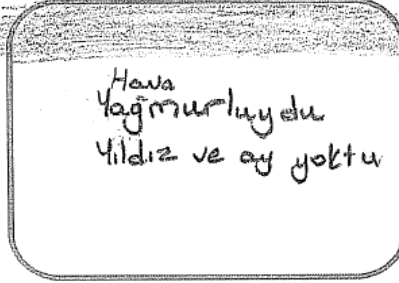 Hava
Yağmurluydu
Yıldız ve ay yoktu